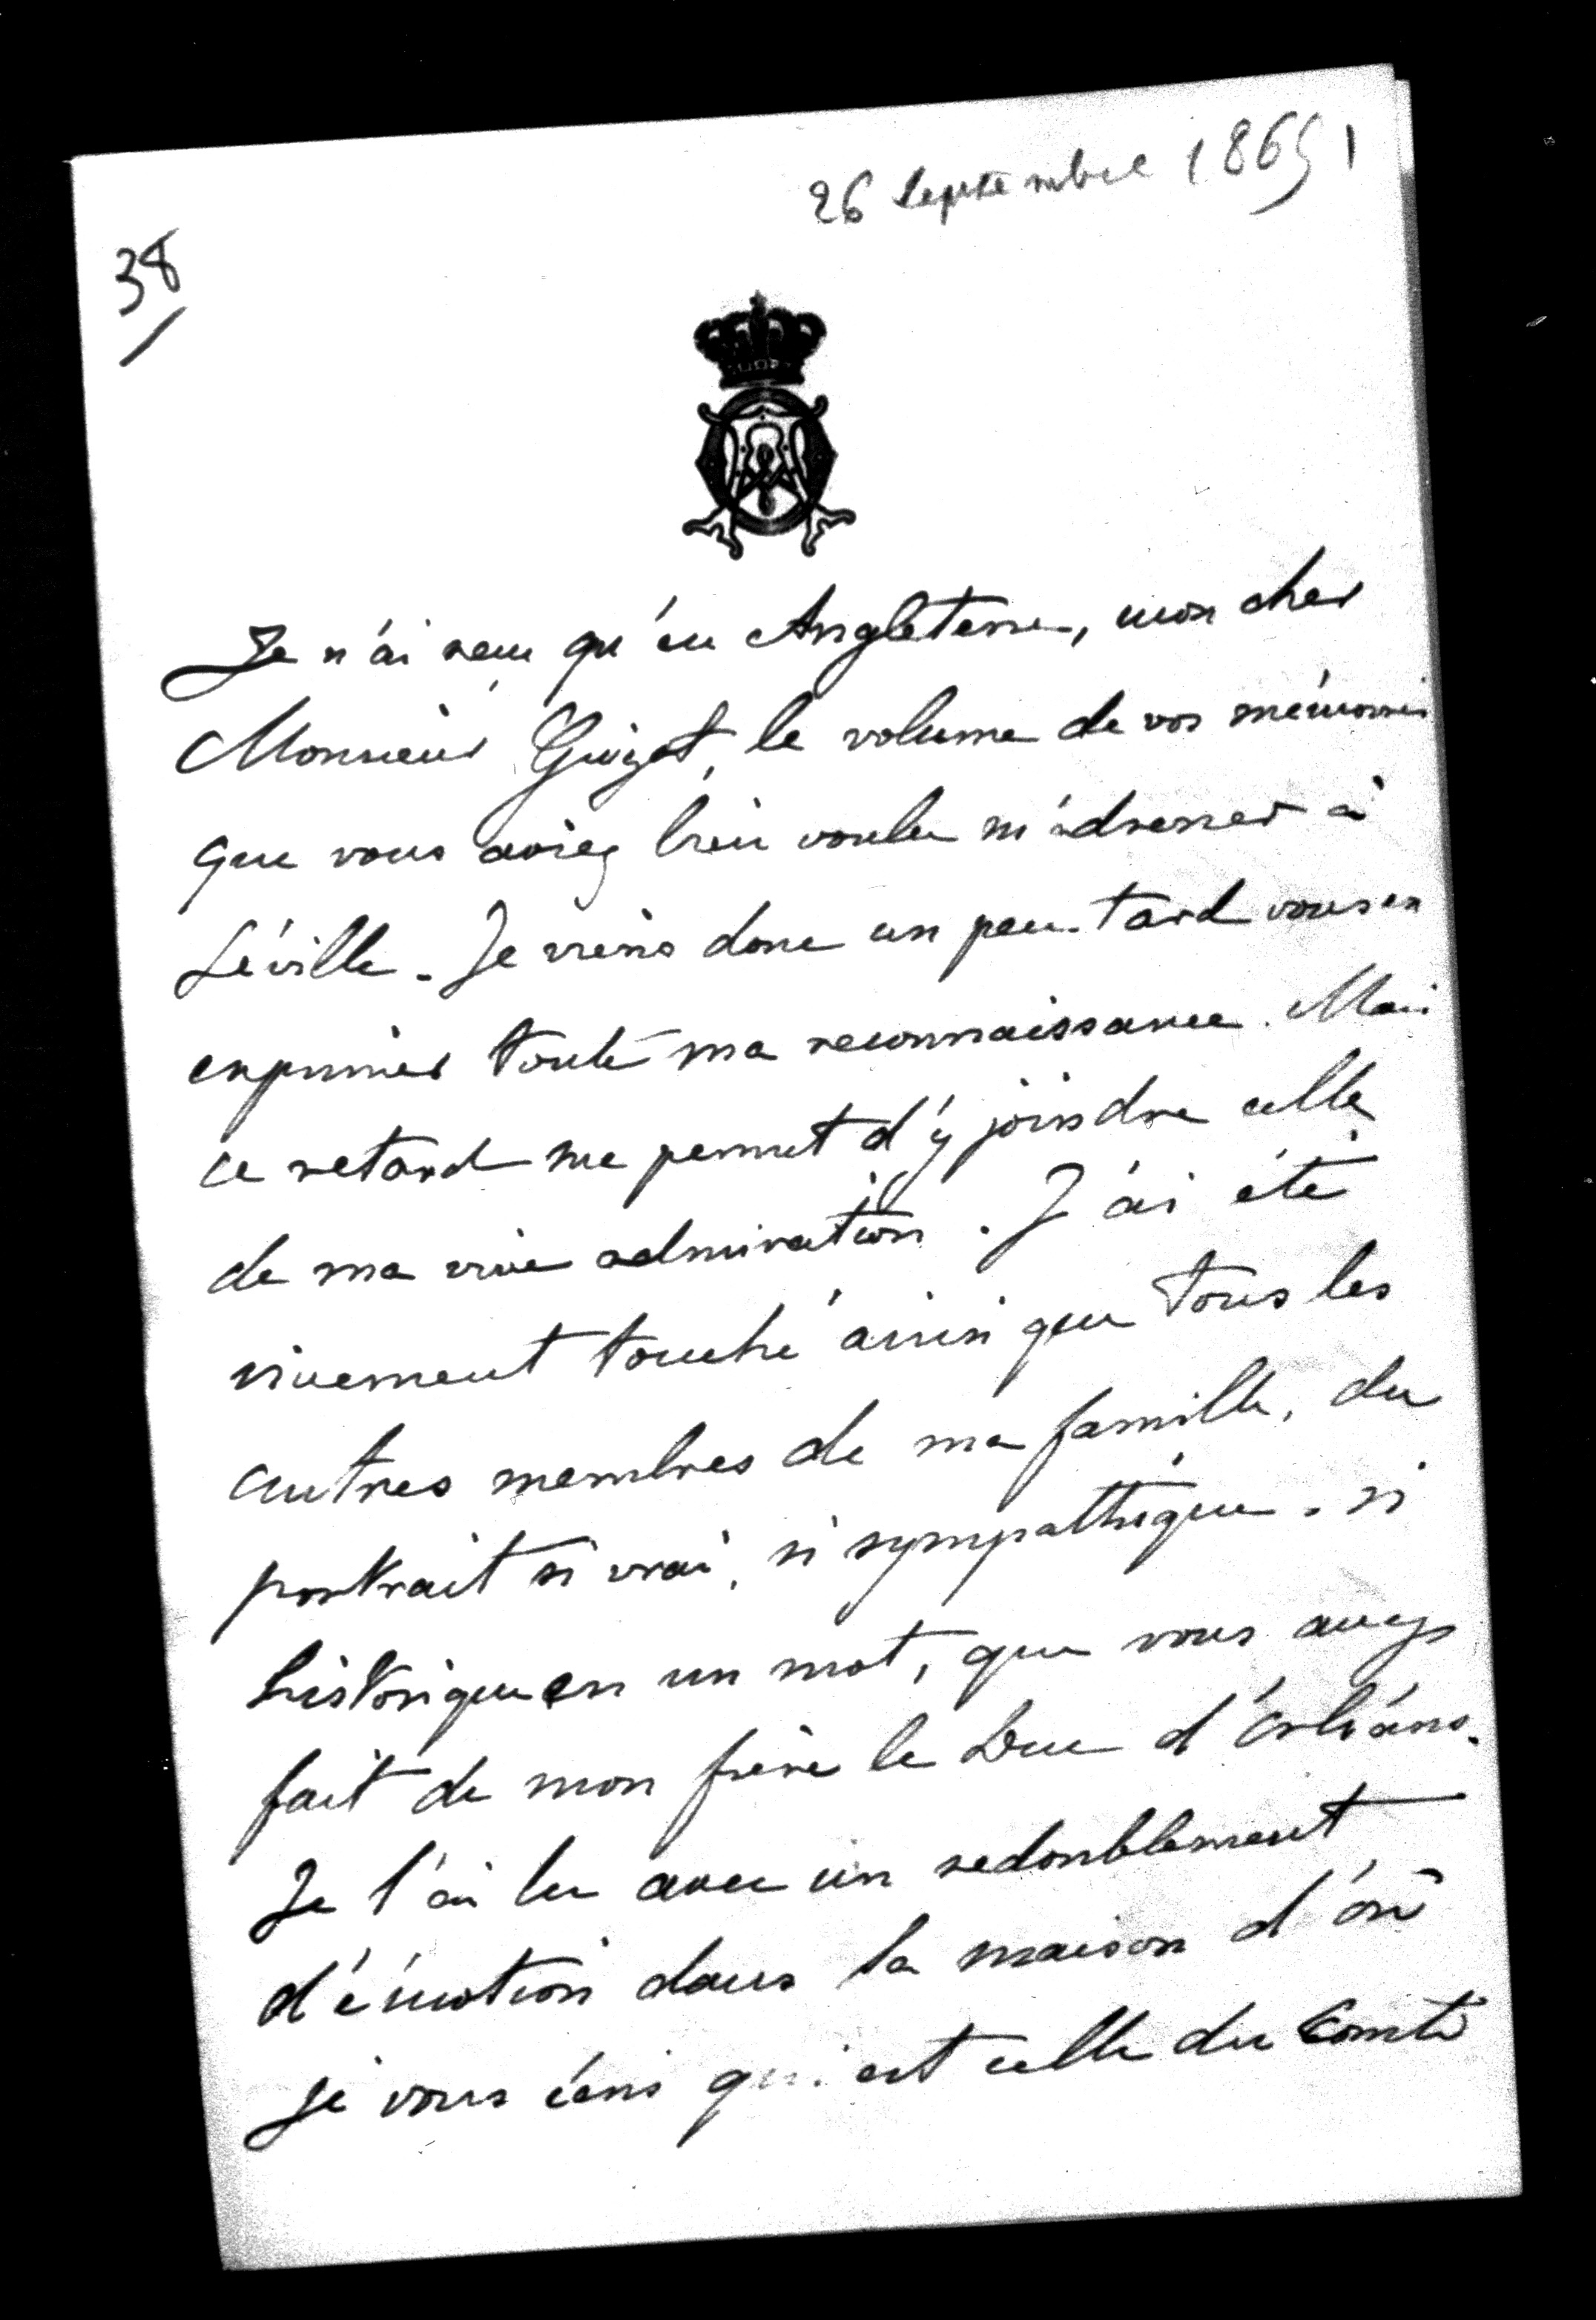 26 septembre 1865 1
38
Je n'ai reçu qu'en Angleterre, mon cher
Monsieur Guizot, le volume de vos mémoires
que vous aviez bien voulu m'adresser à
Séville. Je viens donc un peu tard vous en
exprimer toute ma reconnaissance. Mais
ce retard me permet d'y joindre celle
de ma vive admiration. J'ai été
vivement touché ainsi que tous les
autres membres de ma famille, du
portrait si vrai, si sympathique, si
historique en un mot, que vous avez
fait de mon frère le Duc d'Orléans.
Je l'ai lu avec un redoublement
d'émotion dans la maison d'où
je vous écris qui est celle du Comte